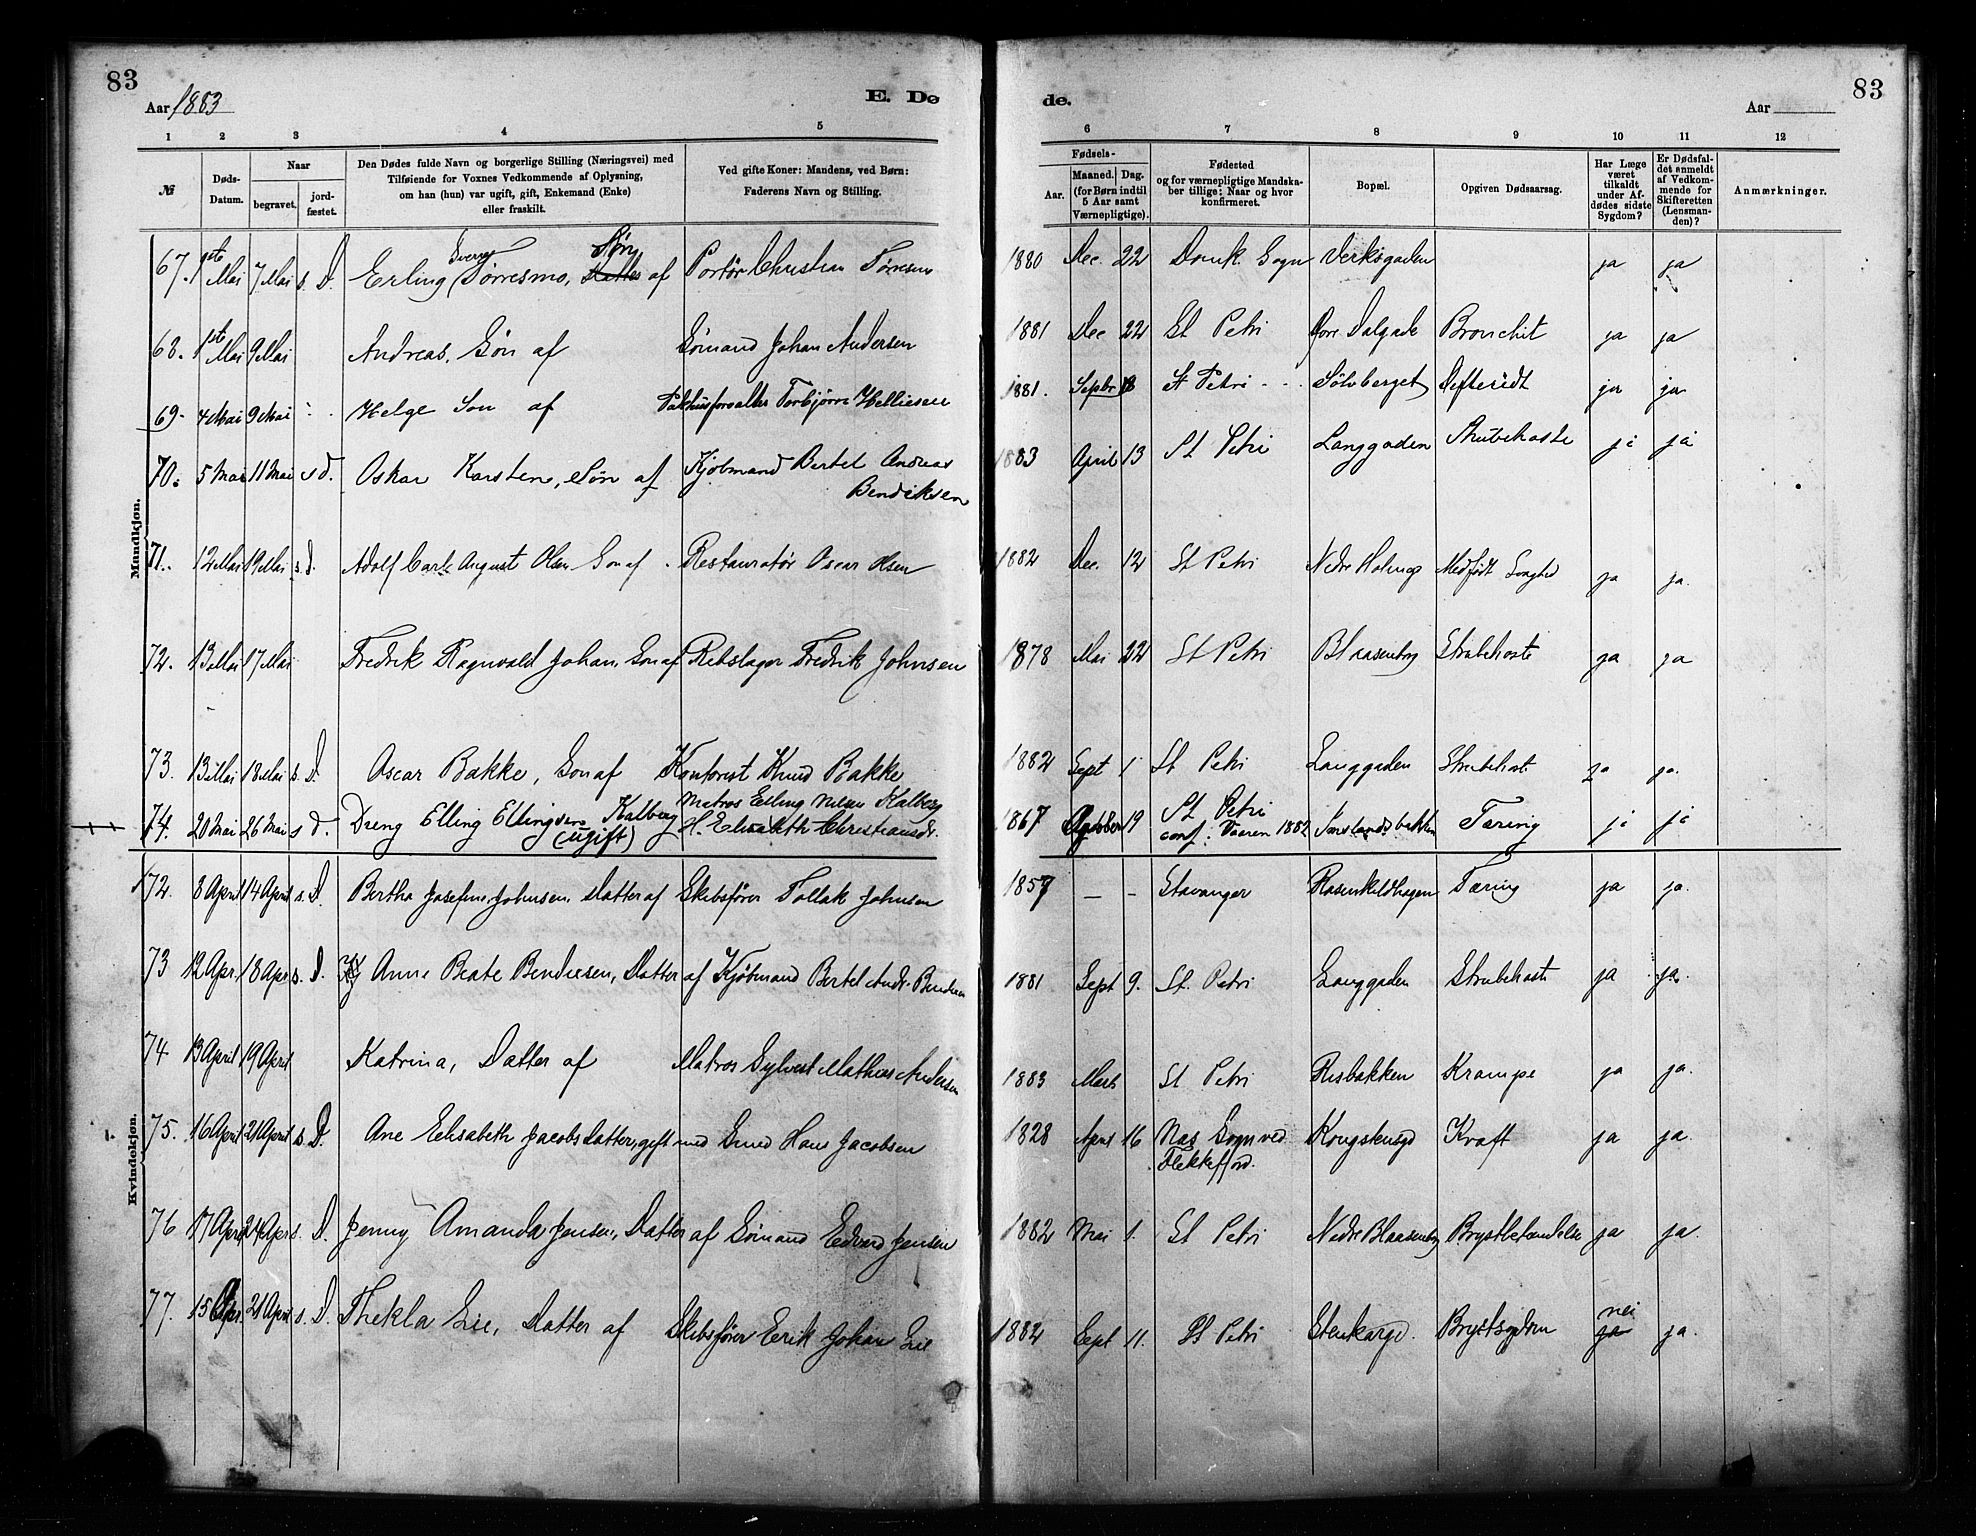 83
Aar 1883
E. Dø
de.
Aar
83
1 2 3 4 5 6 7 8 9 10 11 12
№
Døds-Datum.
Naar
begravet.
jord-fæstet.
Den Dødes fulde Navn og borgerlige Stilling (Næringsvei) med
Tilføiende for Voxnes Vedkommende af Oplysning,
om han (hun) var ugift, gift, Enkemand (Enke)
eller fraskilt.
Ved gifte Koner: Mandens, ved Børn:
Faderens Navn og Stilling.
Fødsels-
Aar.
Maaned. Dag.
(for Børn indtil
5 Aar samt
Værnepligtige).
Fødested
og for værnepligtige Mandska-
ber tillige: Naar og hvor
konfirmeret.
Bopæl.
Opgiven Dødsaarsag.
Har Læge
været
tilkaldt
under Af-
dødes sidste
Sygdom?
Er Dødsfal-
det anmeldt
af Vedkom-
mende for
Skifteretten
(Lensman-
den)?
Anmærkninger.
Mandkjøn.
67. 1ste Mai 7 Mai s. D. Erling Sverre Tørresmo, Søn af Portør Christian 1880 Dec. 22 Domk. Sogn Verksgaden ja ja
68. 1ste Mai 9 Mai Andreas, Søn af Sømand Johan Andersen 1881 Dec 22 St Petri Øvre Dalgade Bronchit ja ja
69. 4 Mai 9 Mai Helge Søn af Pakhusforvalter Torbjørn Helliesen 1881. Septbr 18 St Petri Sølvberget ja ja
70. 5 Mai 11 Mai s d. Oskar Karsten, Søn af Kjøbmand Bertel Andreas
Bendiksen 1883 April 13 St Petri Langgaden Strubehoste ja ja
71. 12 Mai 19 Mai s. d. Adolf Carl August Olsen Søn af Restauratør Oscar Olsen 1882 Dec. 12 St Petri Nedre Holmeg Medfødt Svaghed ja ja.
72. 13 Mai 17 Mai Fredrik Ragnvald Johan, Søn af Rebslager Fredrik Johnsen 1878 Mai 22 St Petri Blaasenborg Strubehoste ja ja
73. 13 Mai 18 Mai s. D. Oscar Bakke, Søn af Kontorist Knud Bakke 1882 Sept 1 St Petri Langgaden Strubehoste ja ja.
74. 20 Mai 26 Mai s d. Dreng Elling Ellingsen Kalberg
(ugift) Matros Elling Nilsen Kalberg
H. Elisabeth Christiansdr. 1867 Octbber 19 St Petri
conf. Vaaren 1882 Tæring ja ja
Kvindekjøn.
72. 8 April 14 April s. D. Bertha Josefine Johnsen, Datter af Skibsfører Tollak Johnsen 1857 — – Stavanger Rosenkildhagen Tæring ja ja.
73 12 Apr. 18 Apr s. D. Anne Beate Bendixsen, Datter af Kjøbmand Bertel Andr. Bendixsen 1881 Sept 9. St. Petri Langgaden Strubehoste ja ja.
74 13 April 19 April Katrina, Datter af Matros Sylvest Mathias Andersen 1883 Marts St Petri Risbakken Krampe ja ja.
75. 16 April 21 April s. D. Ane Elisabeth Jacobsdatter, gift med Smed Hans Jacobsen 1828 April 16 Næs Sogn ved
Flekkefjord. Kongsteensgd Kræft ja ja.
76 17 April 24 Apr s. D. Jenny Amanda Jensen, Datter af Sømand Edvard Jensen 1882 Mai 1. St Petri Nedre Blaasenborg Brystbetændelse ja ja.
77. 15 Apr. 21 April s. D. Thekla Lie, Datter af Skibsfører Eerik Johan Lie 1882 Sept 11. St Petri Stenkarge. Brystsygdom nei ja ja.